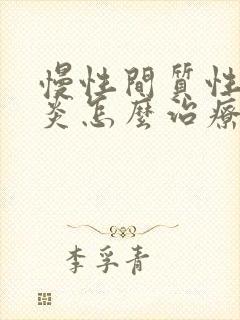 慢性間質性
炎怎麼治療
李孚青